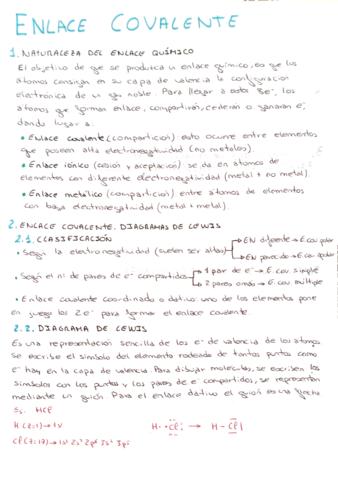 ENLACE COVALENTE
1. NATURALEZA DEL ENLACE QUÍMICO
El objetivo de que se produzca un enlace químico, es que los
átomos consigan en su capa de valencia la configuración
electrónica de un gas noble. Para llegar a estos 8e⁻, los
átomos que forman enlace, compartirán, cederán o ganarán e⁻,
dando lugar a:
• Enlace covalente (compartición): esto ocurre entre elementos
que poseen alta electronegatividad (no metales).
• Enlace iónico (cesión y aceptación) se da en átomos de
elementos con diferente electronegatividad (metal + no metal).
• Enlace metálico (compartición) entre átomos de elementos
con baja electronegatividad (metal + metal).
2. ENLACE COVALENTE. DIAGRAMAS DE LEWIS
2.1. CLASIFICACIÓN
• Según la electronegatividad (suelen ser altas) → EN diferente → E. cov. polar
→ EN parecido → E. cov. apolar
• Según el nº de pares de e⁻ compartidos → 1 par de e⁻ → E. cov. simple
→ 2 pares o más → E. cov. múltiple
• Enlace covalente coordinado o dativo: uno de los elementos pone
en juego los 2e⁻ para formar el enlace covalente.
2.2. DIAGRAMA DE LEWIS
Es una representación sencilla de los e⁻ de valencia de los átomos.
se escribe el símbolo del elemento rodeado de tantos puntos como
e⁻ hay en la capa de valencia. Para dibujar moléculas, se escriben los
símbolos con los puntos y los pares de e⁻ compartidos, se representan
mediante un guión. Para el enlace dativo el guión es una flecha
Ej. HCl
H (Z=1) → 1s¹ H· ·Cl: → H – Cl|
Cl (Z=17) → 1s² 2s² 2p⁶ 3s² 3p⁵